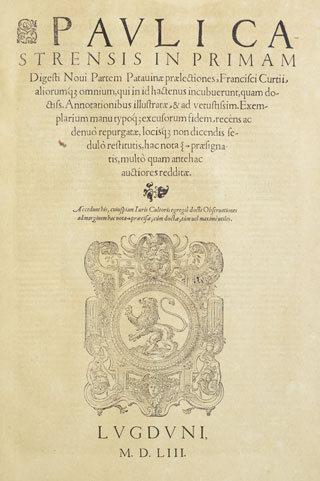 PAVLI CA
STRENSIS IN PRIMAM
Digesti Noui Partem Patauinæ prælectiones, Francisci Curtii,
aliorumq; omnium, qui in id hactenus incubuerunt, quam do-
ctiss. Annotationibus illustratæ, & ad vetustissim. Exem-
plarium manu typoq; excusorum fidem, recèns ac
denuò repurgatæ, locisq; non dicendis se-
dulò restitutis, hac nota præsigna-
tis, multò quam antehac
auctiores redditæ.
Accedunt his, cuiuspiam Iuris Cultoris egregiè docti Obseruationes
ad marginem hac nota præfixæ, cùm doctæ, tum vel maximè vtiles.
LVGDVNI,
M. D. LIII.